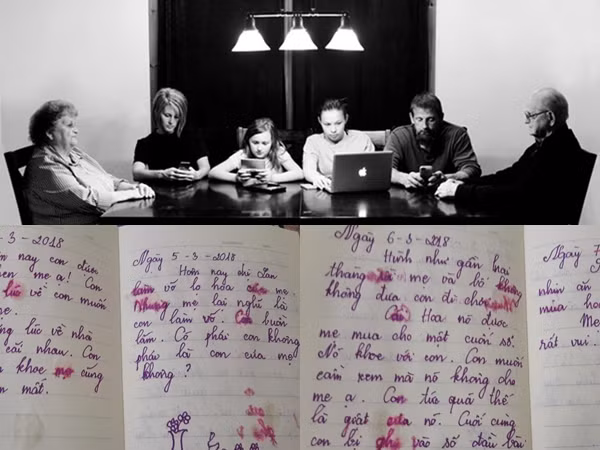 -3-2018
nay con được
xem mẹ ạ! Con
lúc về con muốn
lúc về nhà
cãi nhau. Con
khoe mẹ cũng
mất.
Ngày 5-3-2018
Hôm nay chị Lan
làm vỡ lọ hoa của mẹ.
Nhưng mẹ lại nghĩ là
con làm vỡ. Con buồn
lắm. Có phải con không
phải là con của mẹ
không ?
Ngày 6-3-2018
Hình như gần hai
tháng mẹ và bố không
không đưa con đi chơi
Cái Hoa nó được
mẹ mua cho một cuốn sổ.
Nó khoe với con. Con muốn
cầm xem mà nó không cho
mẹ ạ. Con tức quá thế
là giật của nó. Cuối cùng
con bị ghi vào sổ đầu bài
Ngày 7
nhìn
mùa
Mẹ
rất vui.